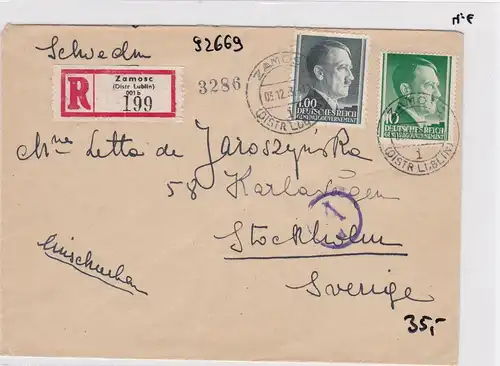 92669
N°F
Schweden
R
Zamosc
(Distr Lublin)
001 b
199
3286
ZAMOSC
03.12.
1
(DISTR LUBLIN)
1.00
DEUTSCHES REICH
GENERALGOUVERNEMENT
10
DEUTSCHES REICH
GENERALGOUVERNEMENT
ZAMOSC
1
(DISTR LUBLIN)
Mme Letta de Jaroszyńska
58 Karlavägen
Stockholm
Sverige
Einschreiben
35,-